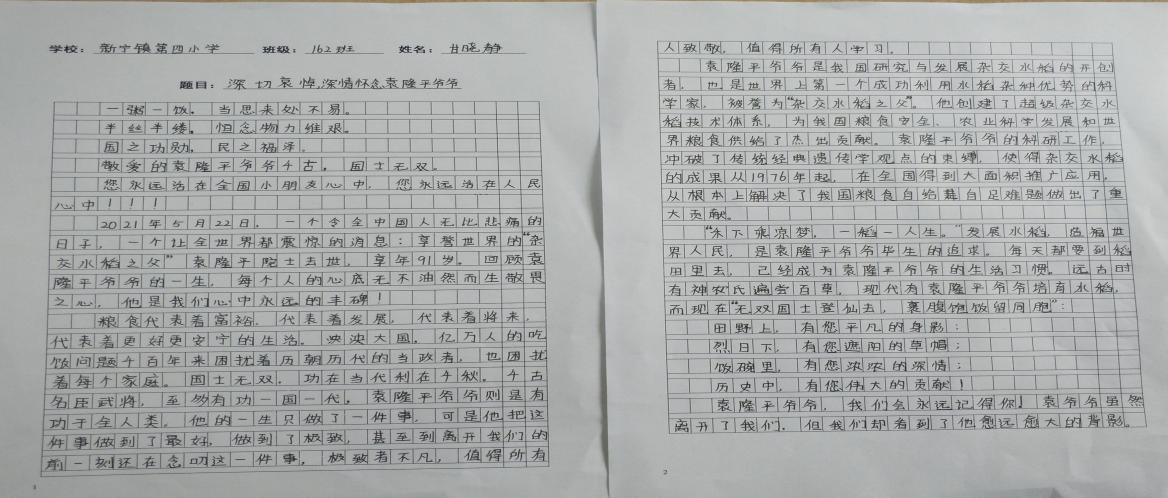 学校：新宁镇第四小学 班级：162班 姓名：甘晓静
题目：深切哀悼,深情怀念袁隆平爷爷
一粥一饭。当思来处不易。
半丝半缕。恒念物力维艰。
国之功勋。民之福泽。
敬爱的袁隆平爷爷千古，国士无双。
您永远活在全国小朋友心中，您永远活在人民
心中！！！
2021年5月22日，一个令全中国人无比悲痛的
日子，一个让全世界都震惊的消息：享誉世界的“杂
交水稻之父”袁隆平院士去世，享年91岁。回顾袁
隆平爷爷的一生，每个人的心底无不油然而生敬畏
之心，他是我们心中永远的丰碑！
粮食代表着富裕，代表着发展，代表着将来，
代表着更好更安宁的生活。泱泱大国，亿万人的吃
饭问题千百年来困扰着历朝历代的当政者，也困扰
着每个家庭。国士无双，功在当代利在千秋。千古
名臣武将，至多有功一国一代，袁隆平爷爷则是有
功于全人类。他的一生只做了一件事，可是他把这
件事做到了最好，做到了极致，甚至到离开我们的
前一刻还在念叨这一件事，极致者不凡，值得所有
1
人致敬，值得所有人学习。
袁隆平爷爷是我国研究与发展杂交水稻的开创
者，也是世界上第一个成功利用水稻杂种优势的科
学家，被誉为“杂交水稻之父”。他创建了超级杂交水
稻技术体系，为我国粮食安全、农业科学发展和世
界粮食供给了杰出贡献。袁隆平爷爷的科研工作，
冲破了传统经典遗传学观点的束缚，使得杂交水稻
的成果从1976年起，在全国得到大面积推广应用，
从根本上解决了我国粮食自给自足难题做出了重
大贡献。
“禾下乘凉梦，一稻一人生。”发展水稻，造福世
界人民，是袁隆平爷爷毕生的追求。每天都要到稻
田里去，已经成为袁隆平爷爷的生活习惯。远古时
有神农氏遍尝百草，现代有袁隆平爷爷培育水稻，
而现在“无双国士登仙去，裹腹饱饭留同胞”：
田野上，有您平凡的身影；
烈日下，有您遮阳的草帽；
饭碗里，有您浓浓的深情；
历史中，有您伟大的贡献！
袁隆平爷爷，我们会永远记得你！袁爷爷虽然
离开了我们，但我们却看到了他愈远愈大的背影。
2